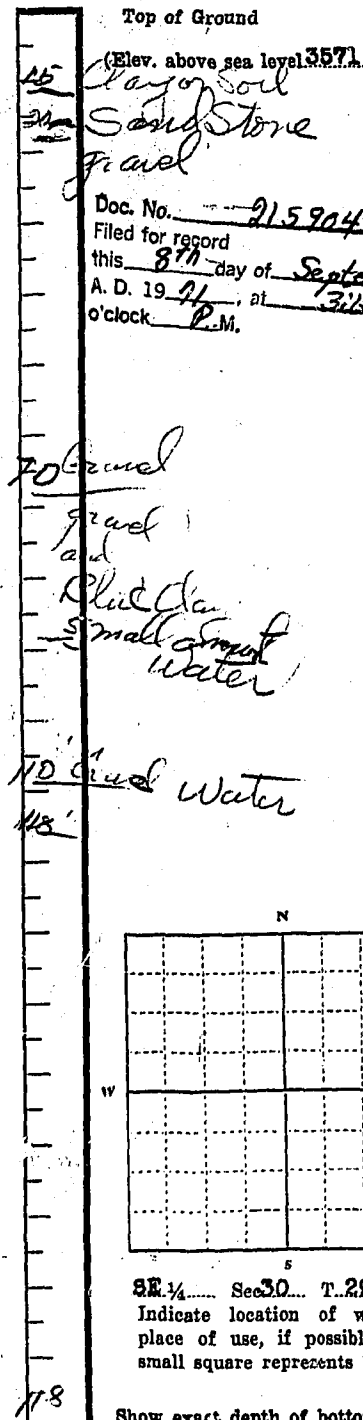 Top of Ground
(Elev. above sea level 3571
Clay or Soil
Sand Stone
gravel
Doc. No. 215904
Filed for record
this 8th day of Septe
A. D. 19 71, at
o'clock P. M.
70 Gravel
gravel
and
Blue Clay
Small amount
Water
110 Gravel Water
118'
N
W
S
SE 1/4 Sec 30 T. 29
Indicate location of w
place of use, if possibl
small square represents
118
Show exact depth of bottom